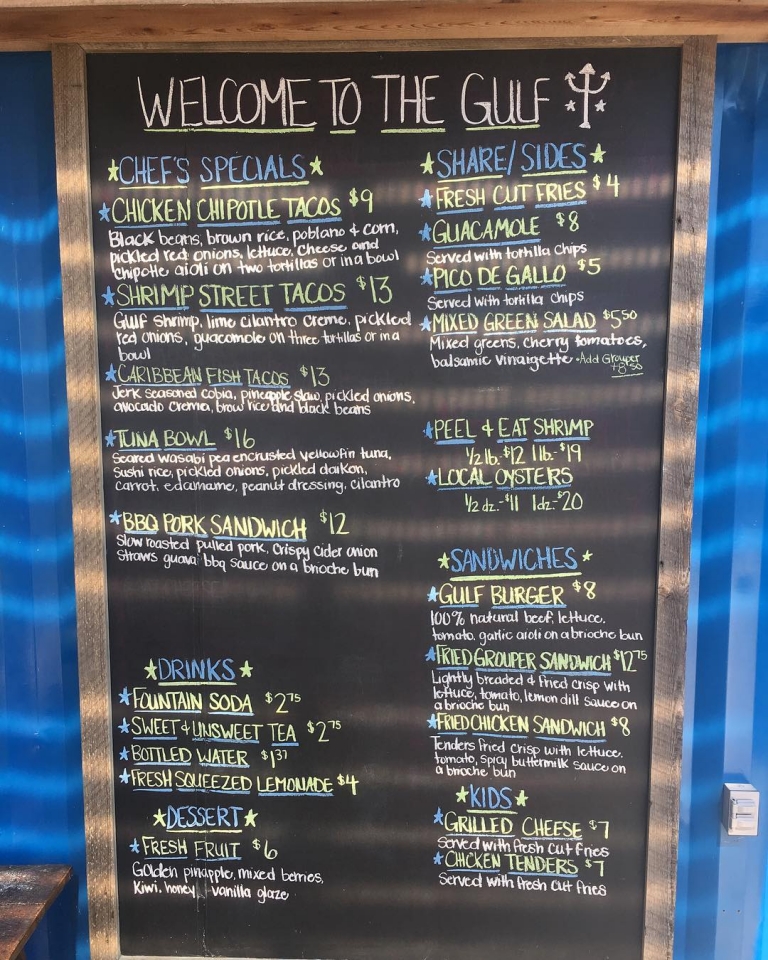 WELCOME TO THE GULF
CHEF'S SPECIALS
CHICKEN CHIPOTLE TACOS $9
Black beans, brown rice, poblano & corn,
pickled red onions, lettuce, cheese and
chipotle aioli on two tortillas or in a bowl
SHRIMP STREET TACOS $13
Gulf shrimp, lime cilantro creme, pickled
red onions, guacomole on three tortillas or in a
bowl
CARIBBEAN FISH TACOS $13
Jerk seasoned cobia, pineapple slaw, pickled onions,
avocado crema, brow rice and black beans
TUNA BOWL $16
Seared wasabi pea encrusted yellowfin tuna,
Sushi rice, pickled onions, pickled daikon,
carrot, edamame, peanut dressing, cilantro
BBQ PORK SANDWICH $12
Slow roasted pulled pork, crispy cider onion
straws guava bbq sauce on a brioche bun
DRINKS
FOUNTAIN SODA $2.75
SWEET & UNSWEET TEA $2.75
BOTTLED WATER $1.37
FRESH SQUEEZED LEMONADE $4
DESSERT
FRESH FRUIT $6
Golden pinapple, mixed berries,
Kiwi, honey, vanilla glaze
SHARE/SIDES
FRESH CUT FRIES $4
GUACAMOLE $8
Served with tortilla chips
PICO DE GALLO $5
Served with tortilla chips
MIXED GREEN SALAD $5.50
Mixed greens, cherry tomatoes,
balsamic vinaigette • Add Grouper
+8.50
PEEL & EAT SHRIMP
1/2 lb. $12 1 lb.- $19
LOCAL OYSTERS
1/2 dz.- $11 1dz- $20
SANDWICHES
GULF BURGER $8
100% natural beef, lettuce,
tomato, garlic aioli on a brioche bun
FRIED GROUPER SANDWICH $12.75
Lightly breaded & fried crisp with
lettuce, tomato, lemon dill sauce on
a brioche bun
FRIED CHICKEN SANDWICH $8
Tenders fried crisp with lettuce,
tomato, spicy buttermilk sauce on
a brioche bun
KIDS
GRILLED CHEESE $7
Served with fresh cut fries
CHICKEN TENDERS $7
Served with fresh cut fries